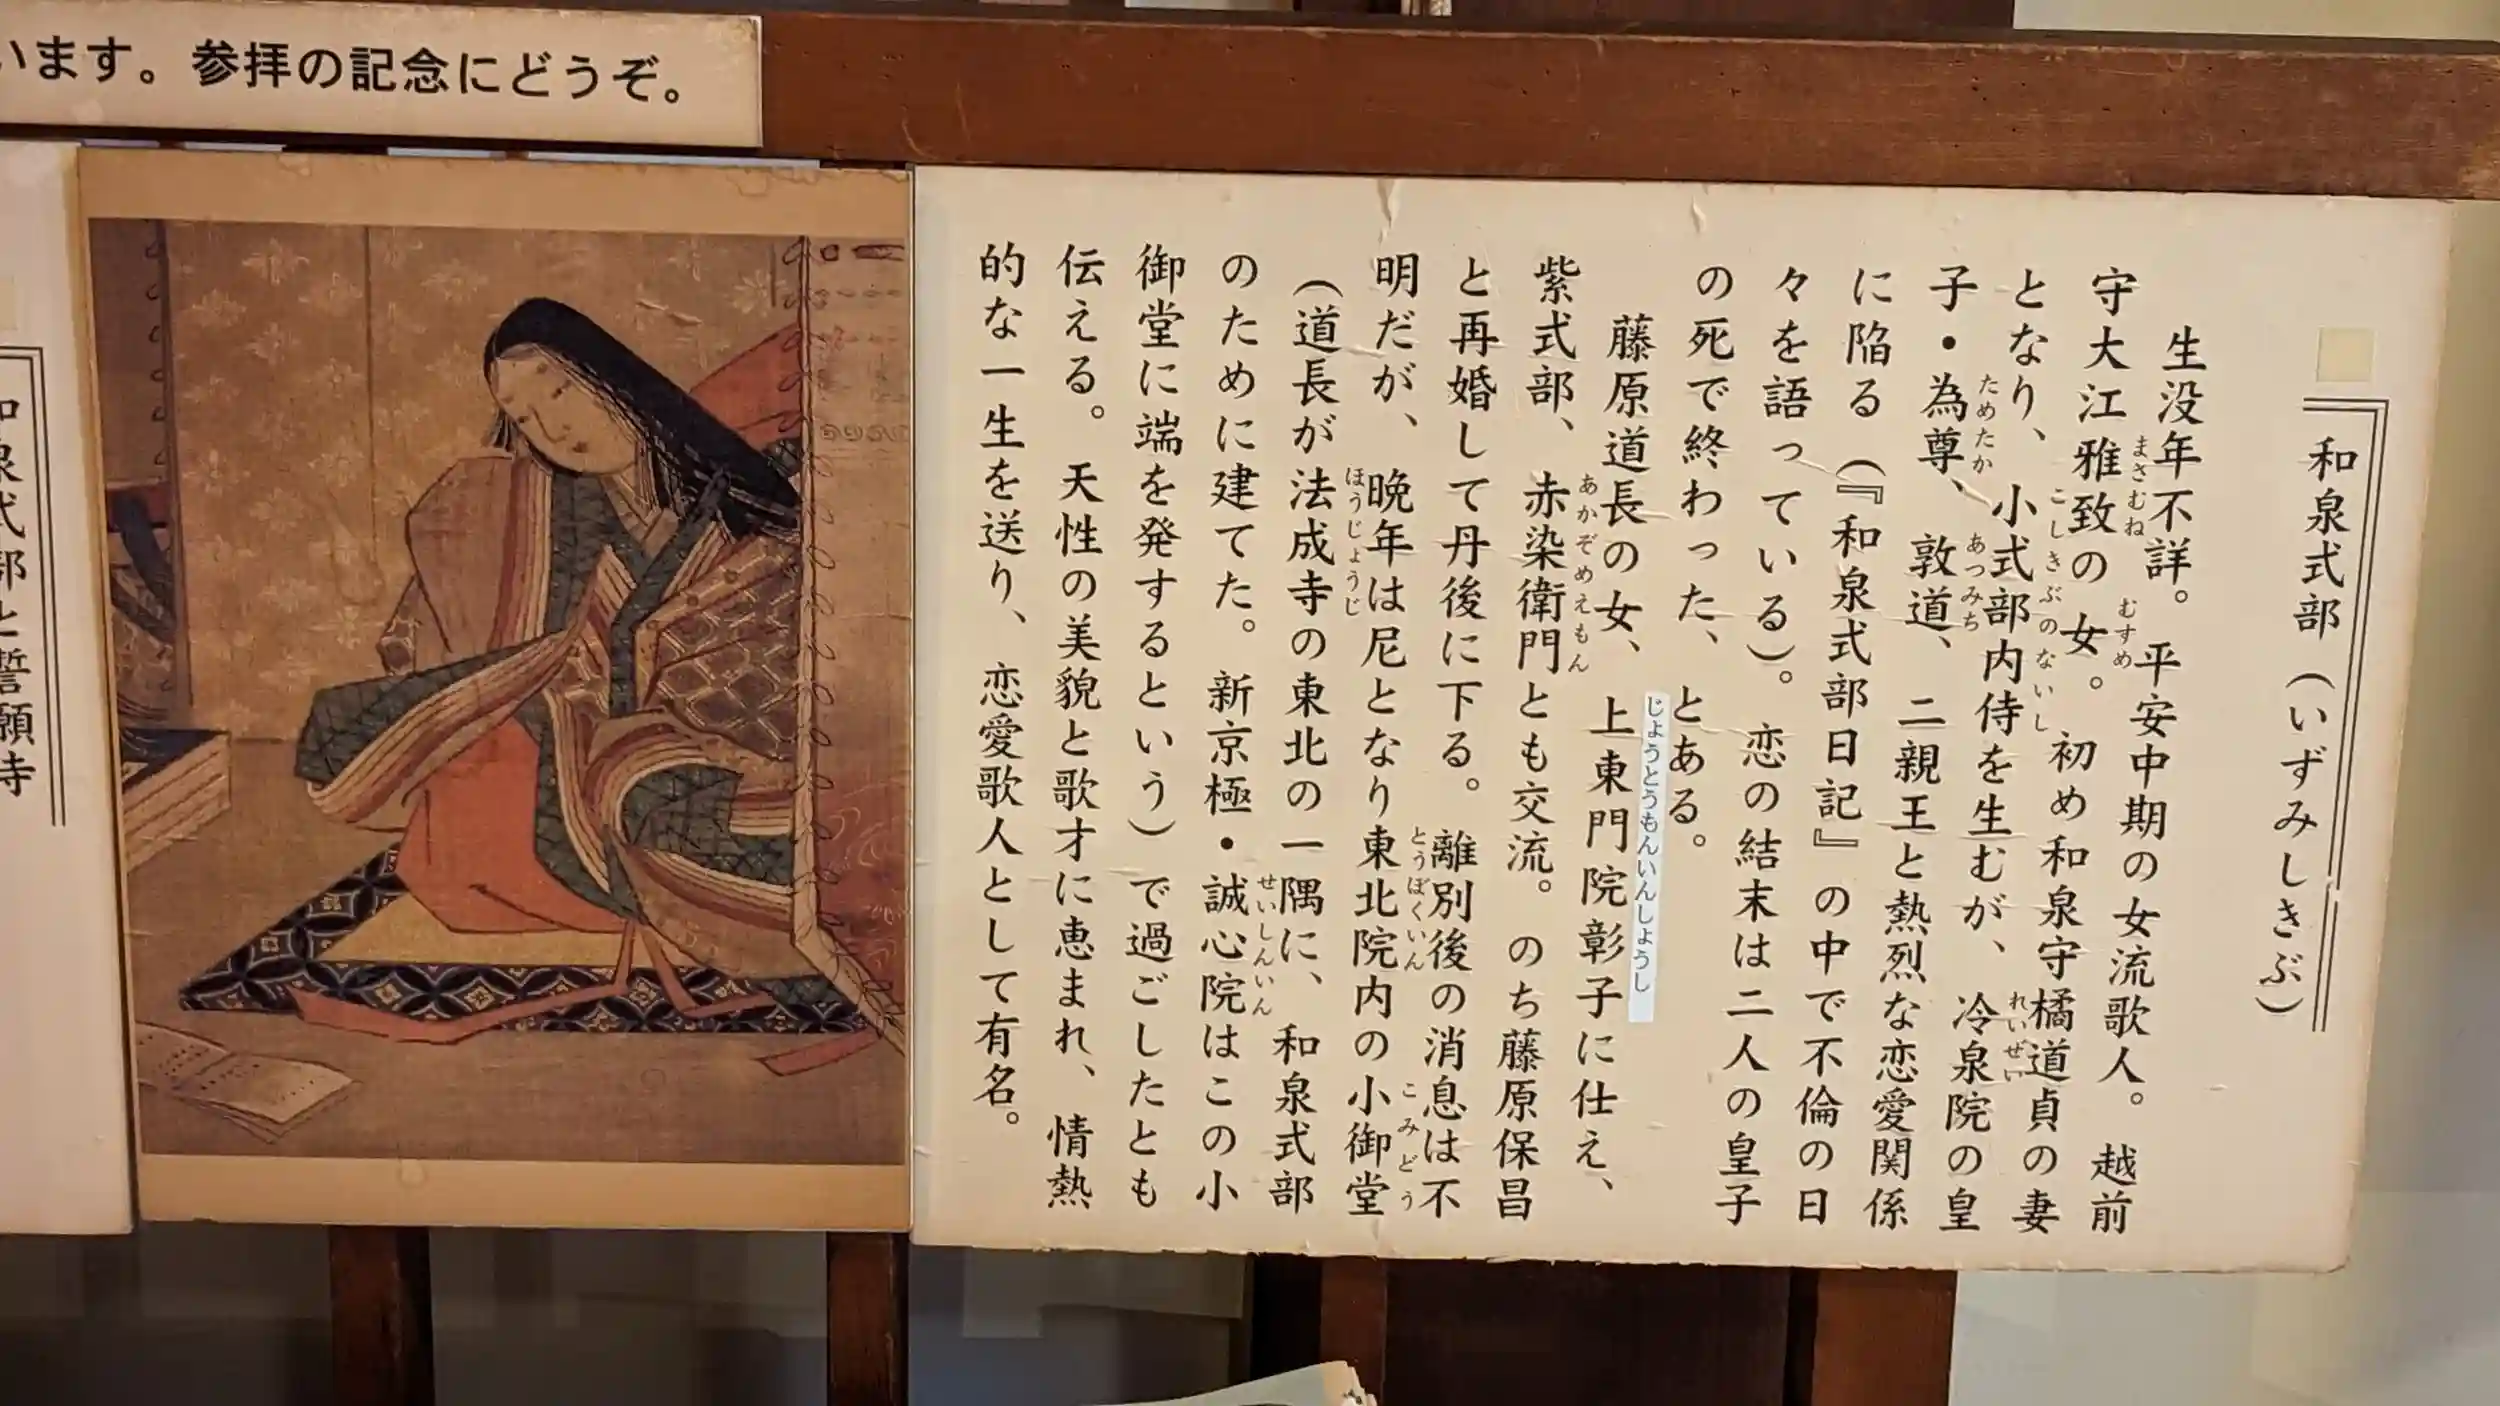 います。参拝の記念にどうぞ。
和泉式部（いずみしきぶ）
生没年不詳。平安中期の女流歌人。越前
守大江雅致の女。初め和泉守橘道貞の妻
まさむね
むすめ
となり、小式部内侍を生むが、冷泉院の皇
こしきぶのないし
れいぜい
子・為尊、敦道、二親王と熱烈な恋愛関係
ためたか
あつみち
に陥る（『和泉式部日記』の中で不倫の日
々を語っている）。恋の結末は二人の皇子
の死で終わった、とある。
藤原道長の女、上東門院彰子に仕え、
じょうとうもんいんしようし
紫式部、赤染衛門とも交流。のち藤原保昌
あかぞめえもん
と再婚して丹後に下る。離別後の消息は不
明だが、晩年は尼となり東北院内の小御堂
とうぼくいん
こみどう
（道長が法成寺の東北の一隅に、和泉式部
ほうじょうじ
のために建てた。新京極・誠心院はこの小
せいしんいん
御堂に端を発するという）で過ごしたとも
伝える。天性の美貌と歌才に恵まれ、情熱
的な一生を送り、恋愛歌人として有名。
和泉式部と誓願寺